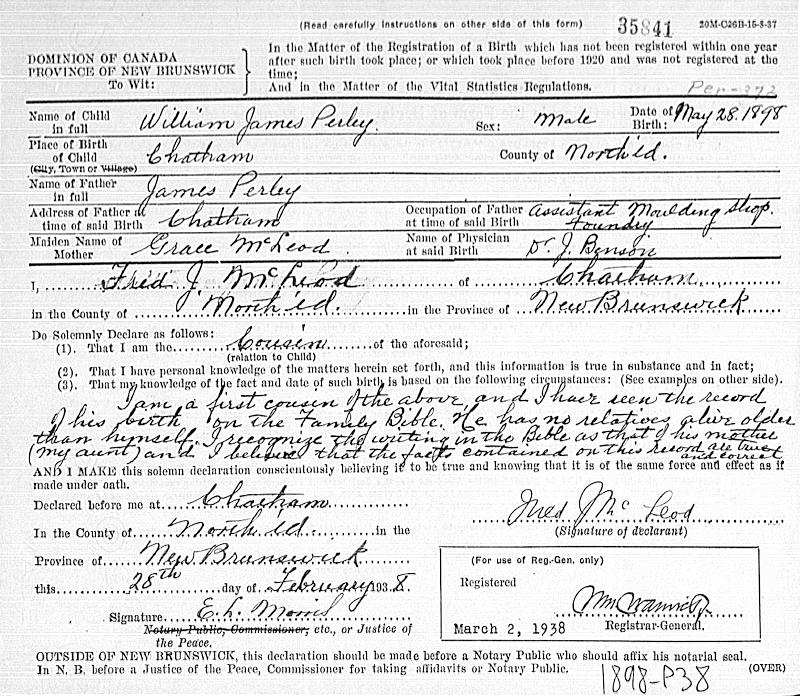 (Read carefully instructions on other side of this form) 35841 20M-C26B-15-8-37
DOMINION OF CANADA
PROVINCE OF NEW BRUNSWICK
To Wit:
In the Matter of the Registration of a Birth which has not been registered within one year
after such birth took place; or which took place before 1920 and was not registered at the
time;
And in the Matter of the Vital Statistics Regulations. Per-372
Name of Child in full William James Perley. Sex: Male Date of Birth: May 28. 1898
Place of Birth of Child (City, Town or Village) Chatham County of North'ld.
Name of Father in full James Perley
Address of Father at time of said Birth Chatham Occupation of Father at time of said Birth Assistant Moulding Shop. Foundry
Maiden Name of Mother Grace McLeod Name of Physician at said Birth Dr J. Benson
I, Fred J. McLeod of Chatham
in the County of North'ld. in the Province of New Brunswick
Do Solemnly Declare as follows:
(1). That I am the Cousin of the aforesaid;
(relation to Child)
(2). That I have personal knowledge of the matters herein set forth, and this information is true in substance and in fact;
(3). That my knowledge of the fact and date of such birth is based on the following circumstances: (See examples on other side).
I am a first cousin of the above, and I have seen the record
of his birth on the Family Bible. He has no relatives alive older
than himself. I recognize the writing in the Bible as that of his mother
(my aunt) and I believe that the facts contained on this record are true
and correct
AND I MAKE this solemn declaration conscientiously believing it to be true and knowing that it is of the same force and effect as if
made under oath.
Declared before me at Chatham
In the County of North'ld in the
Province of New Brunswick
this 28th day of February 1938.
Signature E. L. Morris
Notary Public, Commissioner, etc., or Justice of
the Peace.
Fred J McLeod
(Signature of declarant)
(For use of Reg.-Gen. only)
Registered
March 2, 1938 Registrar-General.
OUTSIDE OF NEW BRUNSWICK, this declaration should be made before a Notary Public who should affix his notarial seal.
In N. B. before a Justice of the Peace, Commissioner for taking affidavits or Notary Public. (OVER)
1898-P38